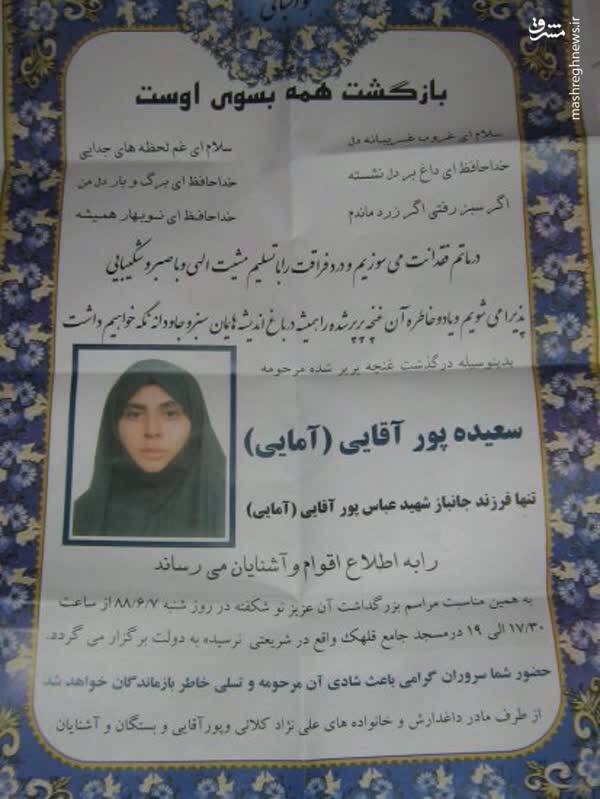 مشرق
mashreghnews.ir
بازگشت همه بسوی اوست
سلام ای غروب غریبانه دل
سلام ای غم لحظه های جدایی
خداحافظ ای داغ بر دل نشسته
خداحافظ ای برگ و بار دل من
اگر سبز رفتی اگر زرد ماندم
خداحافظ ای نوبهار همیشه
در ماتم فقدانت می سوزیم و درد فراقت را با تسلیم مشیت الهی و با صبر و شکیبایی
پذیرا می شویم و یاد و خاطره آن غنچه پرپر شده را همیشه در باغ اندیشه هایمان سبز و جاودانه نگه خواهیم داشت
بدینوسیله درگذشت غنچه پرپر شده مرحومه
سعیده پور آقایی (آمایی)
تنها فرزند جانباز شهید عباس پور آقایی (آمایی)
را به اطلاع اقوام و آشنایان می رساند
به همین مناسبت مراسم بزرگداشت آن عزیز نو شکفته در روز شنبه ۸۸/۶/۷ از ساعت
۱۷/۳۰ الی ۱۹ در مسجد جامع قلهک واقع در شریعتی نرسیده به دولت برگزار می گردد.
حضور شما سروران گرامی باعث شادی آن مرحومه و تسلی خاطر بازماندگان خواهد شد
از طرف مادر داغدارش و خانواده های علی نژاد کلائی وپورآقایی و بستگان و آشنایان